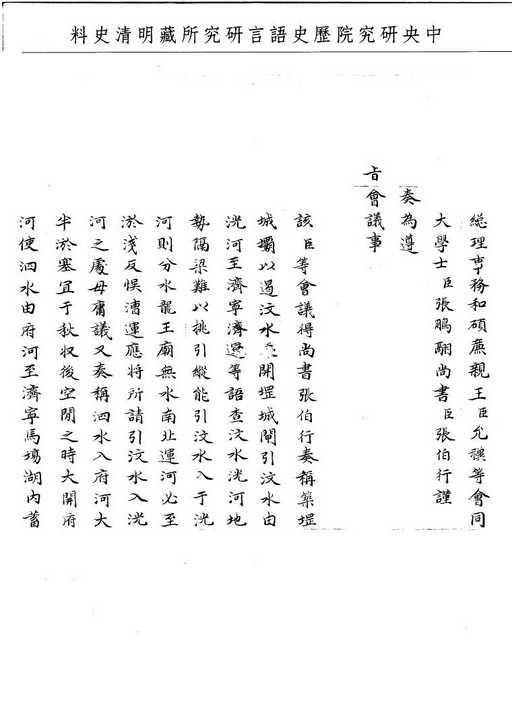 中央研究院歷史語言研究所藏明清史料
總理事務和碩廉親王臣允禩等會同
大學士臣張鵬翮尚書臣張伯行謹
奏為遵
旨會議事
該臣等會議得尚書張伯行奏稱築堽
城壩以遏汶水開堽城閘引汶水由
洸河至濟寧濟運等語查汶水洸河地
勢隔梁難以挑引縱能引汶水入于洸
河則分水龍王廟無水南北運河必至
淤淺反悞漕運應將所請引汶水入洸
河之處毋庸議又奏稱泗水入府河大
半淤塞宜于秋收後空閒之時大開府
河使泗水由府河至濟寧馬場湖內蓄